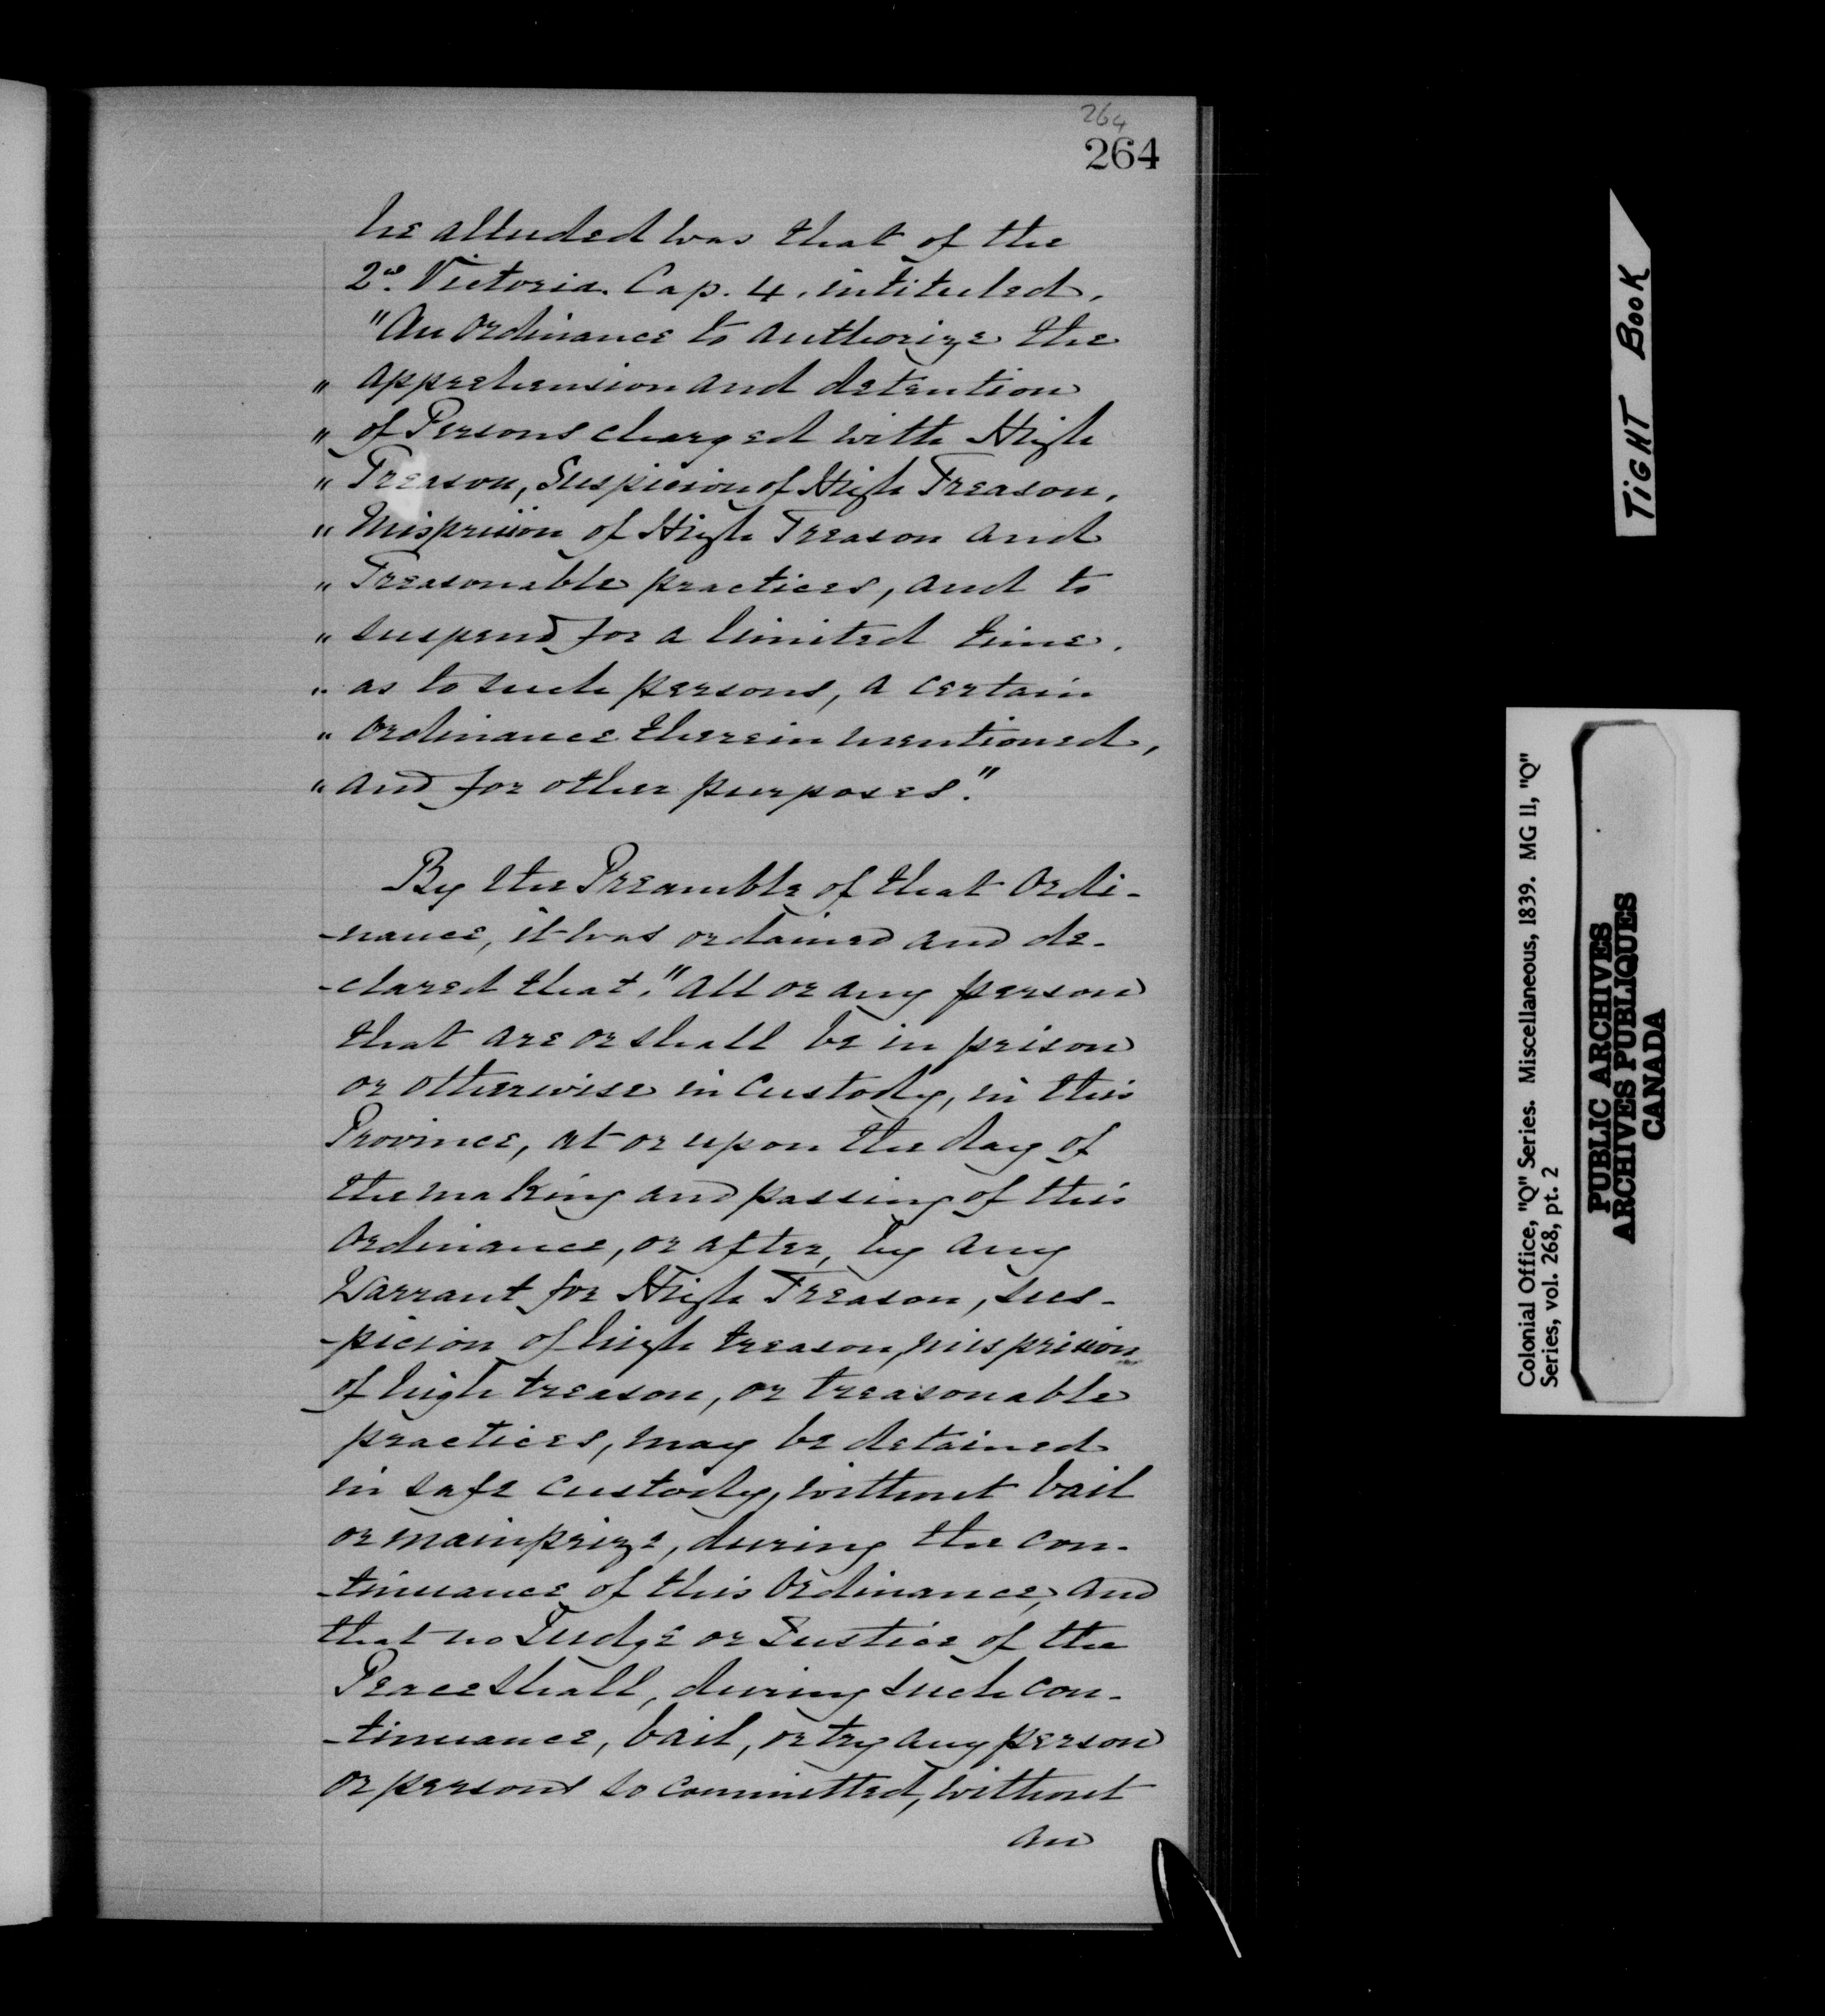 264
264
he alluded was that of the
2d. Victoria. Cap. 4. intituled,
"An Ordinance to authorize the
" apprehension and detention
" of Persons charged with High
" Treason, Suspicion of High Treason,
" Misprision of High Treason and
" Treasonable practices, and to
" suspend for a limited time,
" as to such persons, a certain
" Ordinance therein mentioned,
" and for other purposes."
By the Preamble of that Ordi-
-nance, it was ordained and de-
-clared that, "all or any person
that are or shall be in prison
or otherwise in custody, in this
Province, at or upon the day of
the making and passing of this
Ordinance, or after, by any
Warrant for High Treason, sus-
-picion of high treason, misprision
of high treason, or treasonable
practices, may be detained
in safe custody, without bail
or mainprize, during the con-
-tinuance of this Ordinance, and
that no Judge or Justice of the
Peace shall, during such con-
-tinuance, bail, or try any person
or persons so committed, without
an
TIGHT BOOK
Colonial Office, "Q" Series. Miscellaneous, 1839. MG 11, "Q"
Series, vol. 268, pt. 2
PUBLIC ARCHIVES
ARCHIVES PUBLIQUES
CANADA